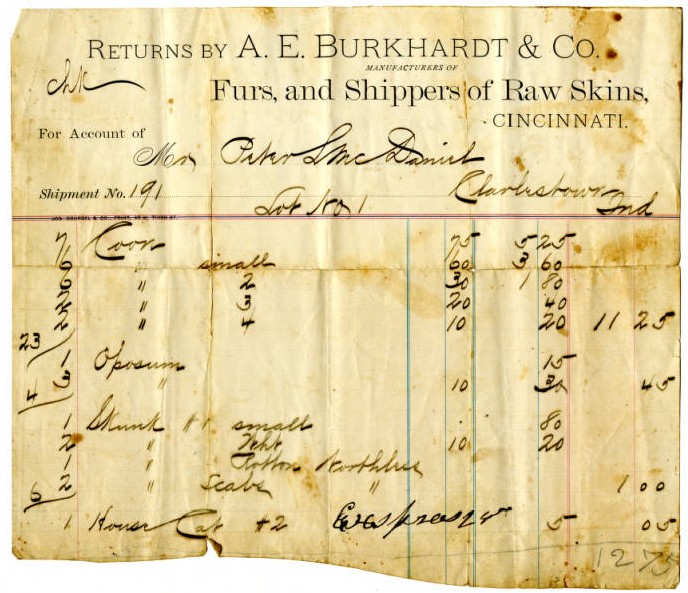 RETURNS BY A. E. BURKHARDT & CO.
MANUFACTURERS OF
Chk
Furs, and Shippers of Raw Skins,
CINCINNATI.
For Account of
Mr Peter S McDaniel
Shipment No. 191 Charlestown
Lot No 1 Ind
7 Coon 75 5 25
6 " small 60 3 60
6 " 2 30 1 80
2 " 3 20 40
2 " 4 10 20 11 25
23
1 Oposum 15
3 " 10 30 45
4
1 Skunk #1 small 80
2 " Wht 10 20
1 " Rotton Worthless
2 " Scabs "
6 1 00
1 House Cat #2 5 05
12 75